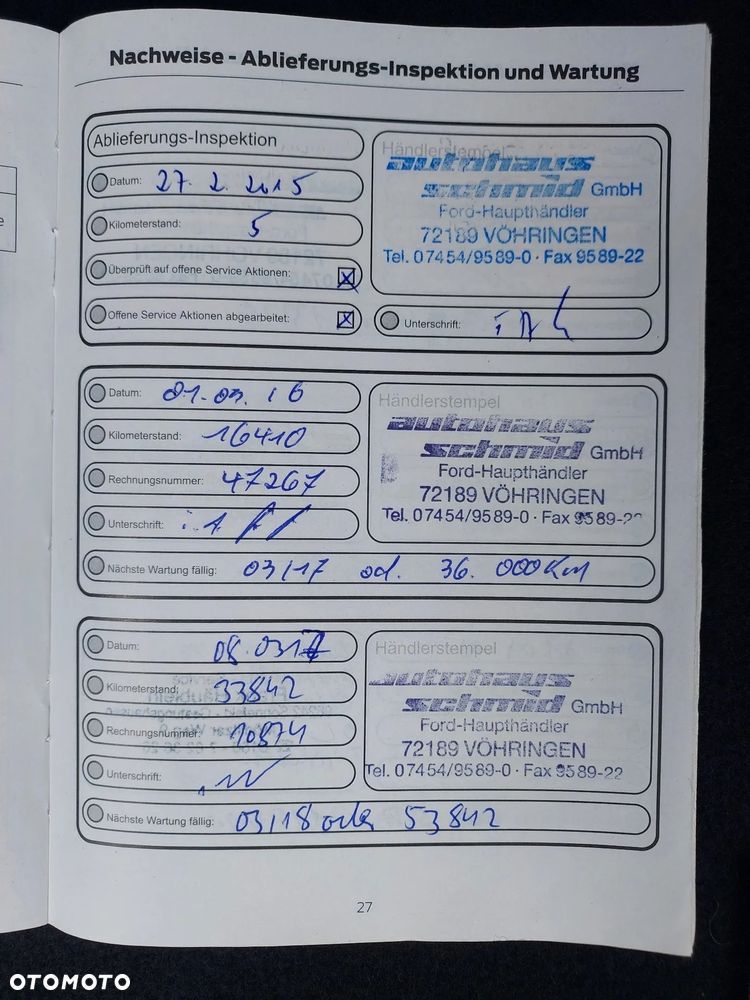 Nachweise - Ablieferungs-Inspektion und Wartung
Ablieferungs-Inspektion
Datum: 27. 2. 2015
Kilometerstand: 5
Überprüft auf offene Service Aktionen: X
Offene Service Aktionen abgearbeitet: X
Händlerstempel
autohaus
schmid GmbH
Ford-Haupthändler
72189 VÖHRINGEN
Tel. 07454/9589-0 · Fax 9589-22
Unterschrift:
Datum: 01.03.16
Kilometerstand: 16410
Rechnungsnummer: 47267
Unterschrift:
Händlerstempel
autohaus
schmid GmbH
Ford-Haupthändler
72189 VÖHRINGEN
Tel. 07454/9589-0 · Fax 9589-22
Nächste Wartung fällig: 03/17 od. 36.000 Km
Datum: 08.0317
Kilometerstand: 33842
Rechnungsnummer: 10874
Unterschrift:
Händlerstempel
autohaus
schmid GmbH
Ford-Haupthändler
72189 VÖHRINGEN
Tel. 07454/9589-0 · Fax 9589-22
Nächste Wartung fällig: 03/18 oder 53842
27
OTOMOTO